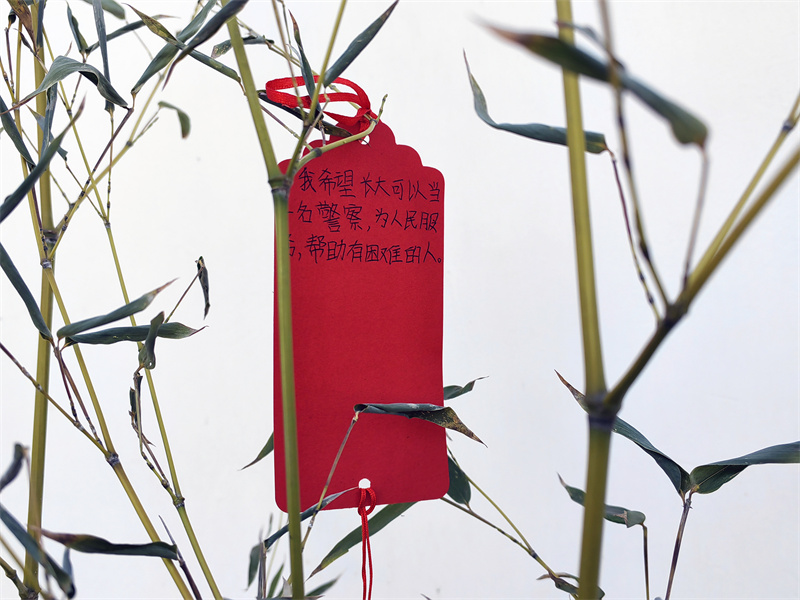 我希望长大可以当
一名警察,为人民服
务,帮助有困难的人。